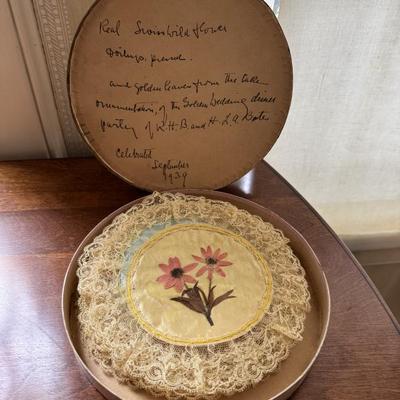 Real Swiss Wild flower
Doilys, pressed.
and golden leaves from the cake
ornamentation, of the Golden Wedding dinner
party of R. H. B. and H. L. A.
Celebrated
September
1939